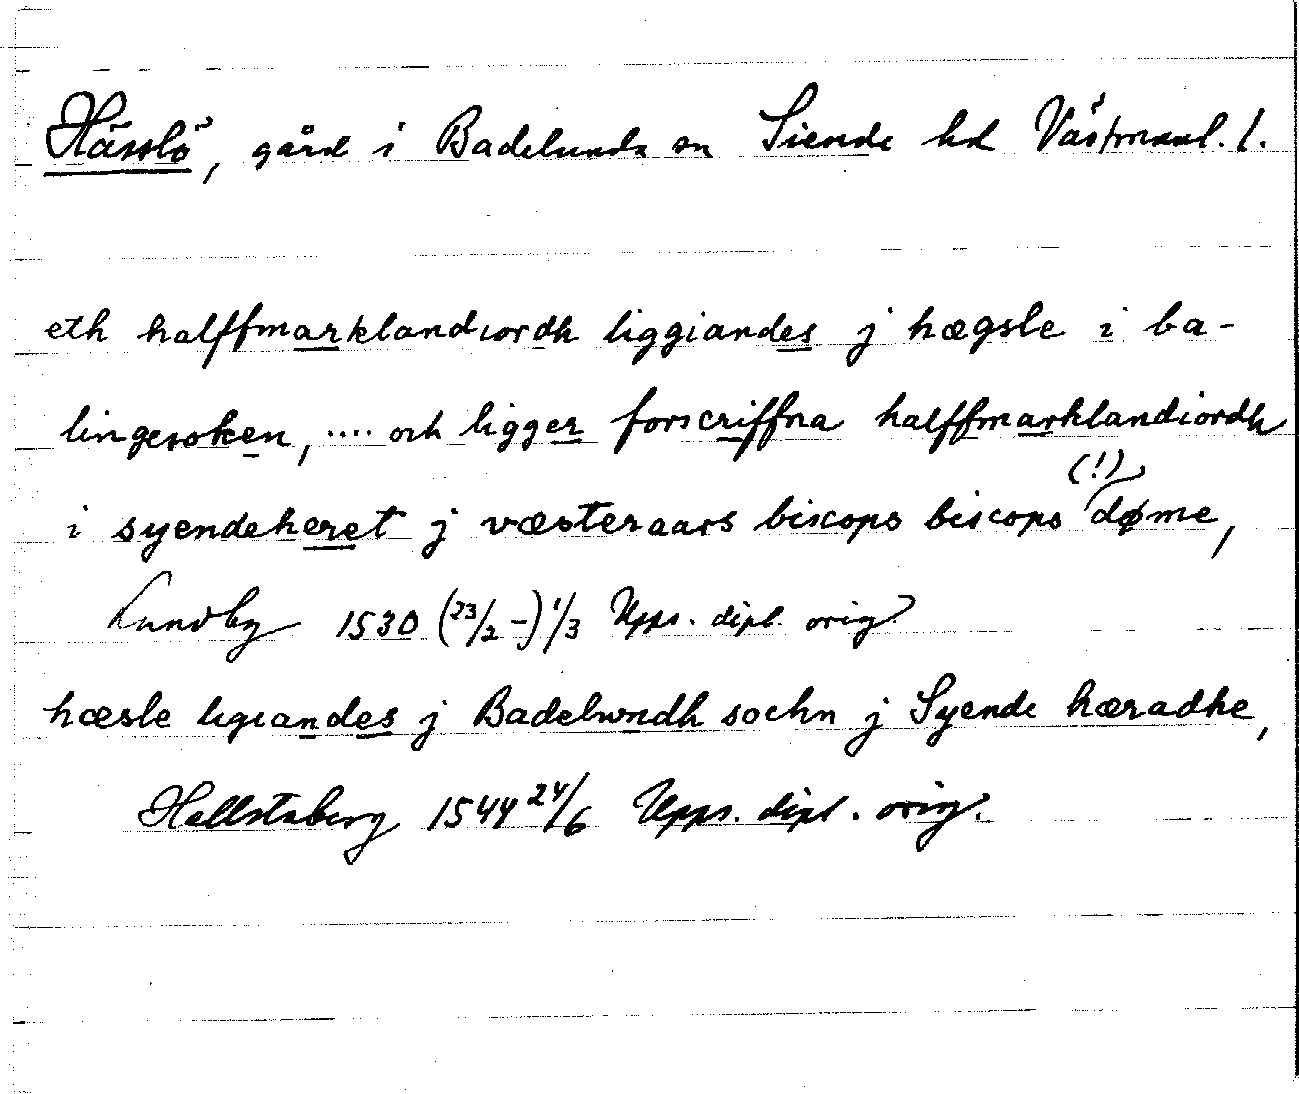 Hässlö, gård i Badelunda sn Siende hd Västmanl. l.
eth halffmarklandiordh liggiandes j hægsle i ba-
lingesoken, .... och ligger forscriffna halffmarklandiordh
(!)
i syendeheret j væsteraars biscops biscops døme,
Lundby 1530 (23/2 -) 1/3 Upps. dipl. orig.
hæsle ligiandes j Badelwndh sochn j Syende hæradhe,
Hallstaberg 1544 24/6 Upps. dipl. orig.